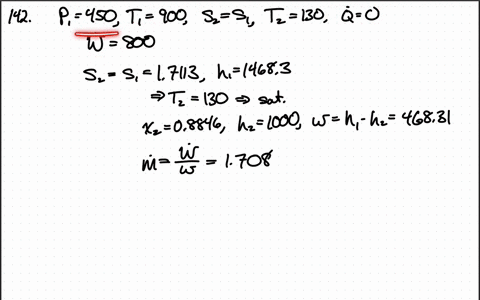 142. P₁ = 450, T₁ = 900, S₂ = S₁, T₂ = 130, Q̇ = 0
Ẇ = 800
S₂ = S₁ = 1.7113, h₁ = 1468.3
⇒ T₂ = 130 ⇒ sat.
x₂ = 0.8846, h₂ = 1000, w = h₁ - h₂ = 468.31
ṁ = Ẇ/w = 1.708